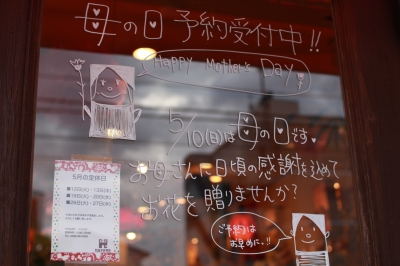 母の日 予約受付中!!
Happy Mother's Day
5/10(日)は母の日です。
お母さんに日頃の感謝を込めて
お花を贈りませんか?
ご予約は
お早めに!!
5月の定休日